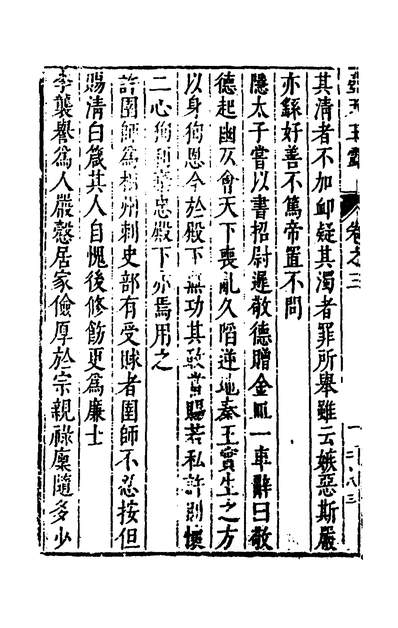 其清者不加卹疑其濁者罪所舉雖云嫉惡斯嚴
亦繇好善不篤帝置不問
隱太子嘗以書招尉遲敬德贈金皿一車辭曰敬
德起幽仄會天下喪亂久陷逆地秦王實生之方
以身徇恩今於殿下無功其敢當賜若私許則懷
二心徇利棄忠殿下亦焉用之
許圉師為相州刺史部有受賕者圉師不忍按但
賜清白箴其人自愧後修飭更為廉士
李襲譽為人嚴愨居家儉厚於宗親祿廩隨多少
卷之三
二八三